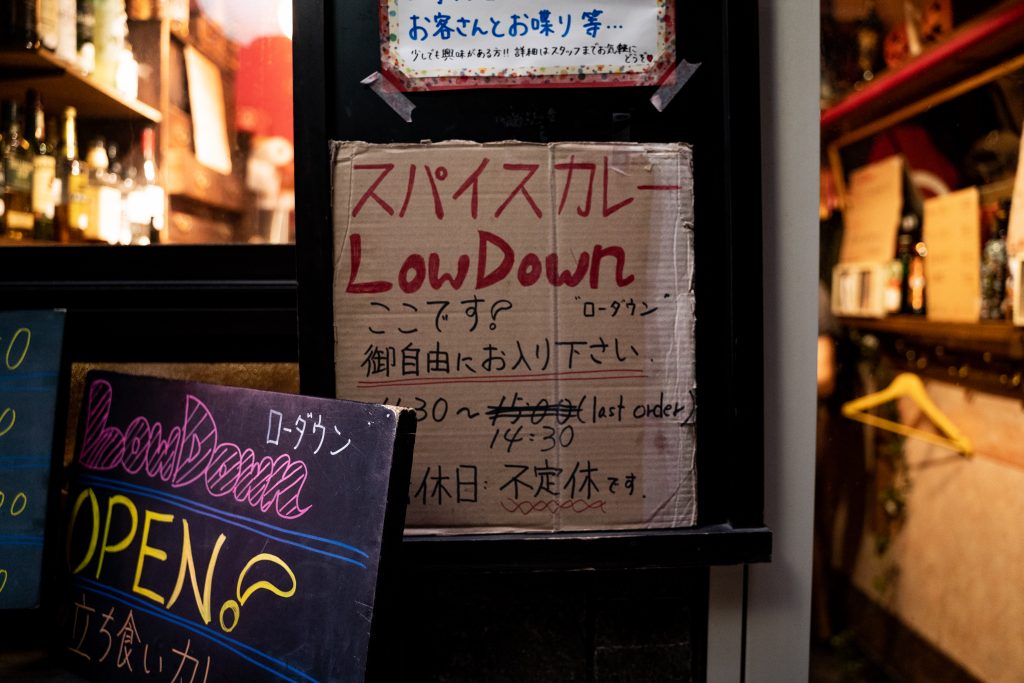 お客さんとお喋り等...
少しでも興味がある方!! 詳細はスタッフまでお気軽に
どうぞ♥
スパイスカレー
LowDown
ここです!
"ローダウン"
御自由にお入り下さい.
11:30〜15:00(last order)
14:30
休日: 不定休です.
LowDown
ローダウン
OPEN!
立ち食いカレ